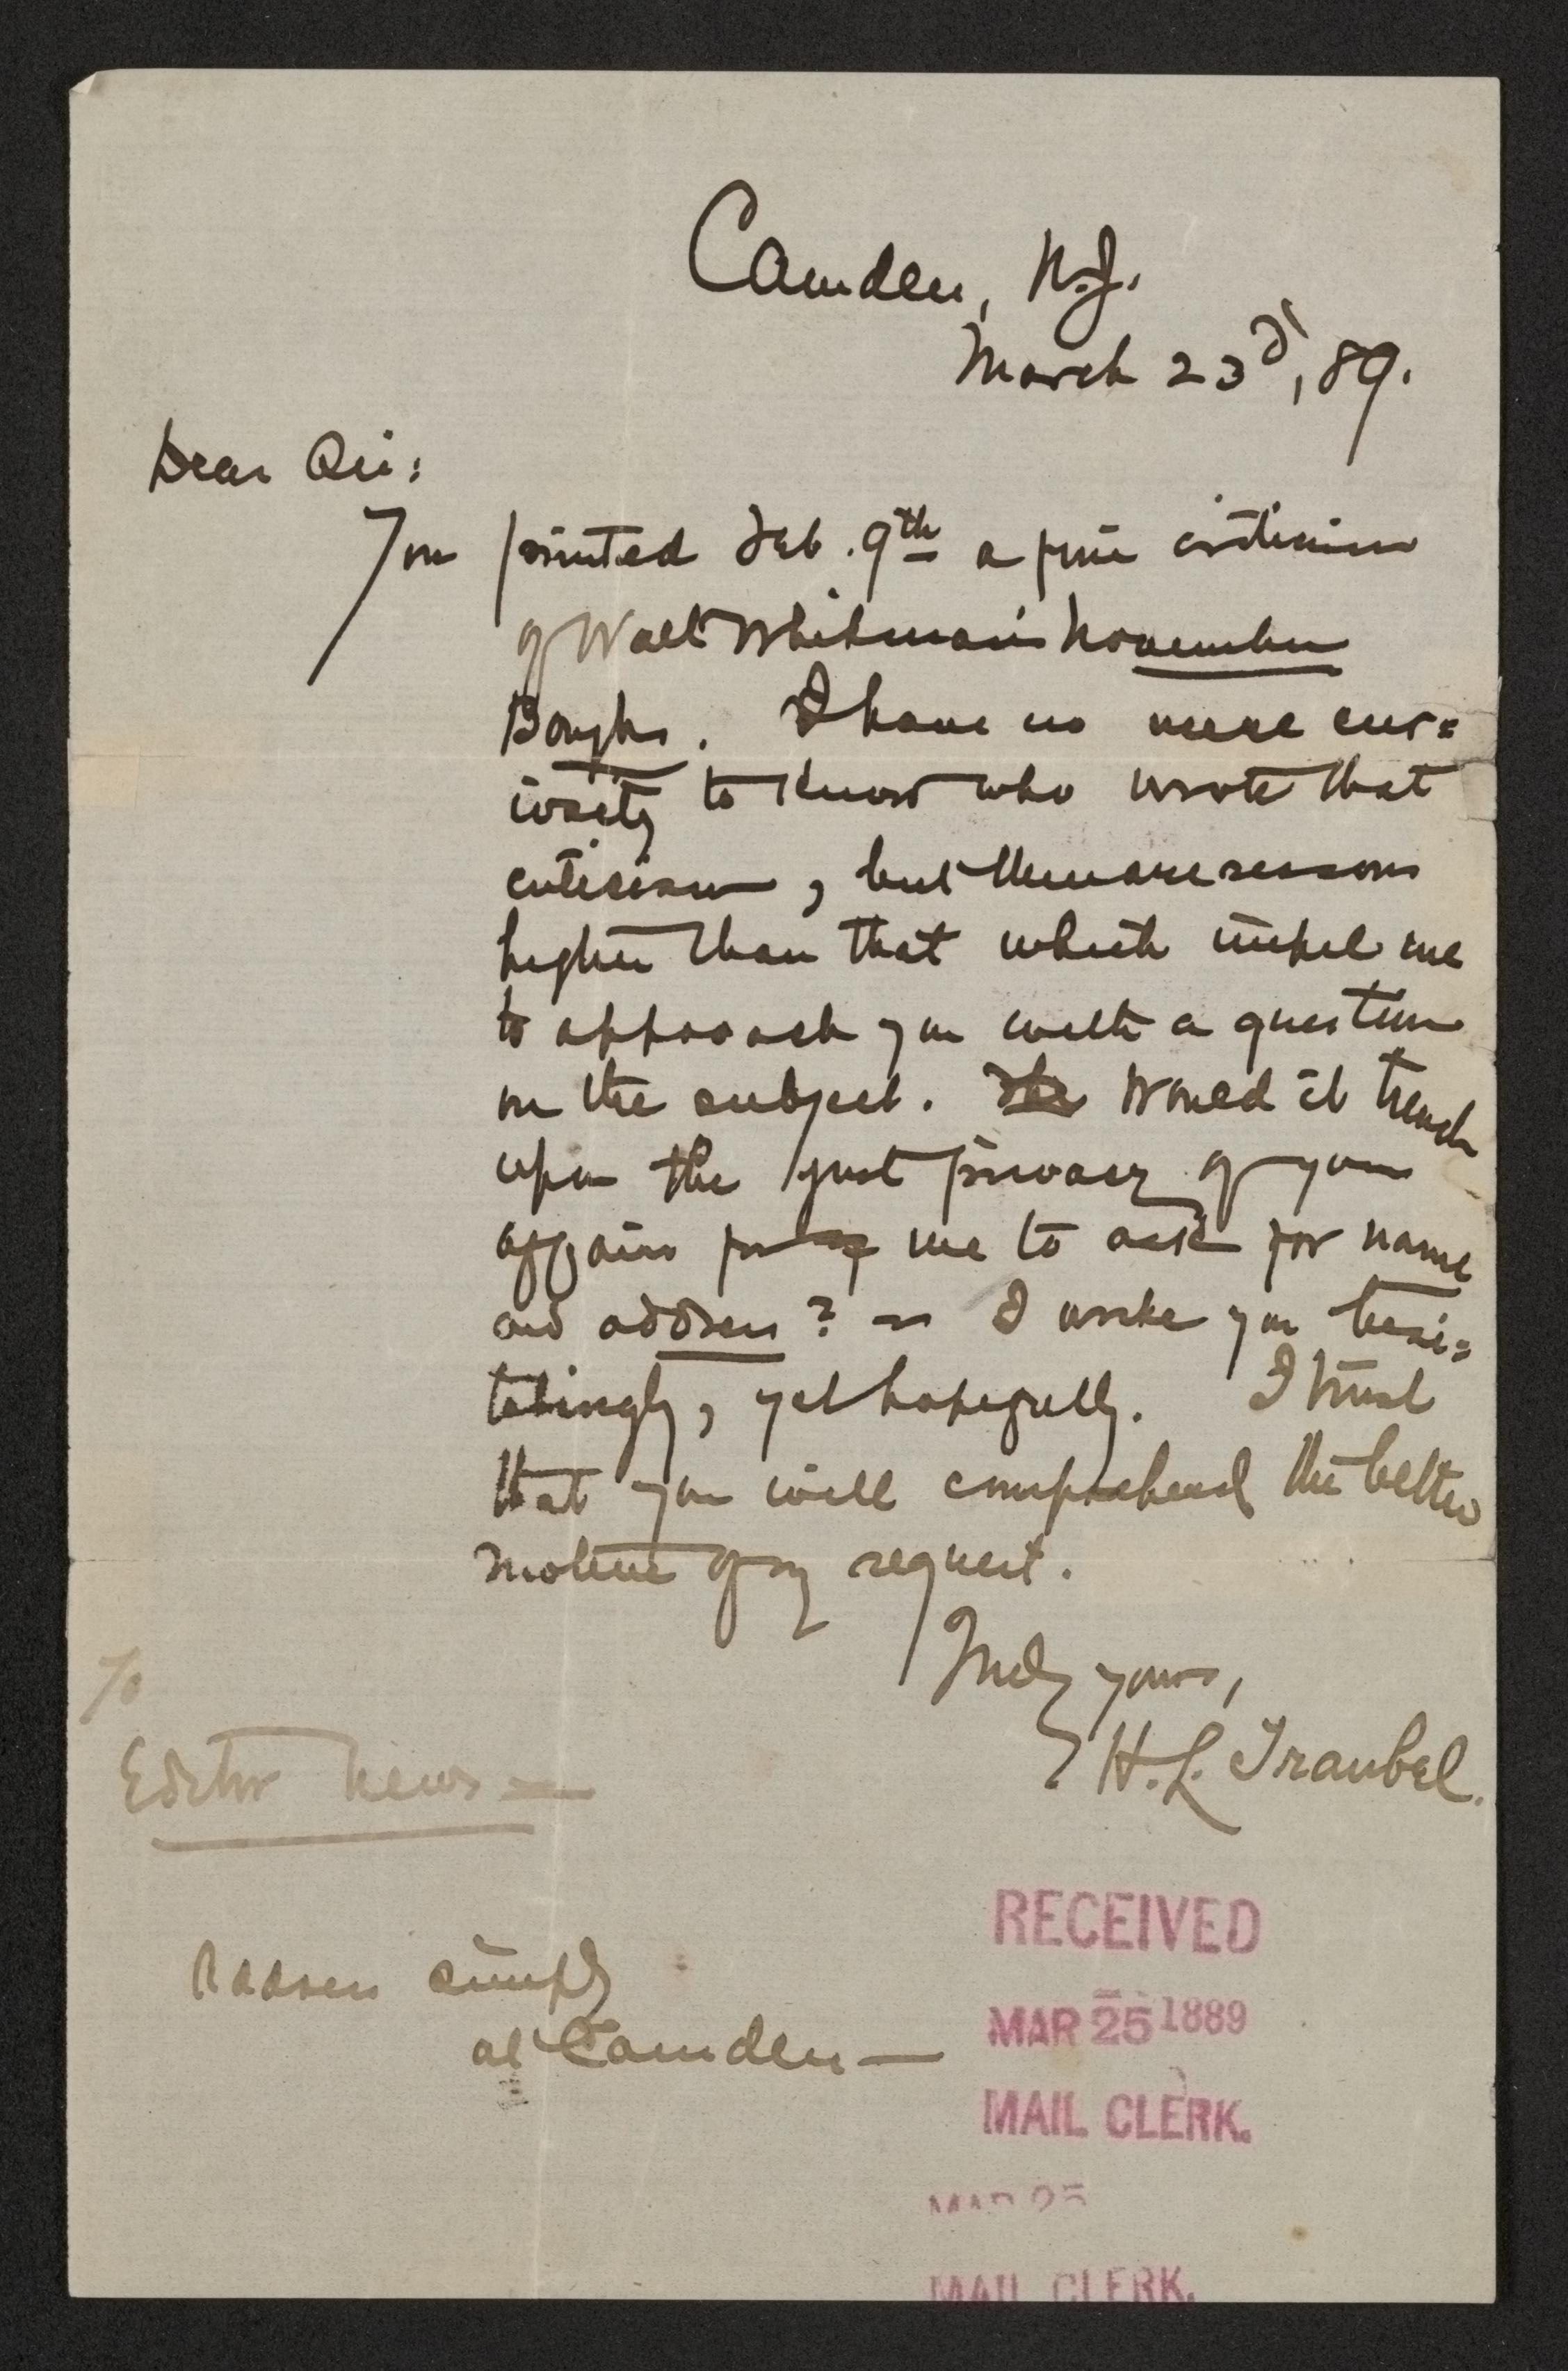 Camden, N.J.
March 23d, 89.
Dear Sir:
You printed Feb. 9th a fine criticism
of Walt Whitman's November
Boughs. I have no mere cur=
iosity to know who wrote that
criticism, but there are reasons
higher than that which impel me
to approach you with a question
on the subject. Would it trench
upon the just privacy of your
affairs for me to ask for name
and address? — I write you hesi=
tatingly, yet hopefully. I trust
that you will comprehend the better
motive of my request.
Truly yours,
H. L. Traubel.
To
Editor News —
Address simply
at Camden —
RECEIVED
MAR 25 1889
MAIL CLERK.
MAR 25
MAIL CLERK.